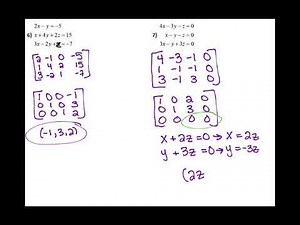 2x − y = −5
6) x + 4y + 2z = 15
3x − 2y + z = −7
2 -1 0 -5
1 4 2 15
3 -2 1 -7
1 0 0 -1
0 1 0 3
0 0 1 2
(-1,3,2)
4x − 3y − z = 0
7) x − y − z = 0
3x − y + 3z = 0
4 -3 -1 0
1 -1 -1 0
3 -1 3 0
1 0 2 0
0 1 3 0
0 0 0 0
x + 2z = 0 → x = 2z
y + 3z = 0 → y = -3z
(2z